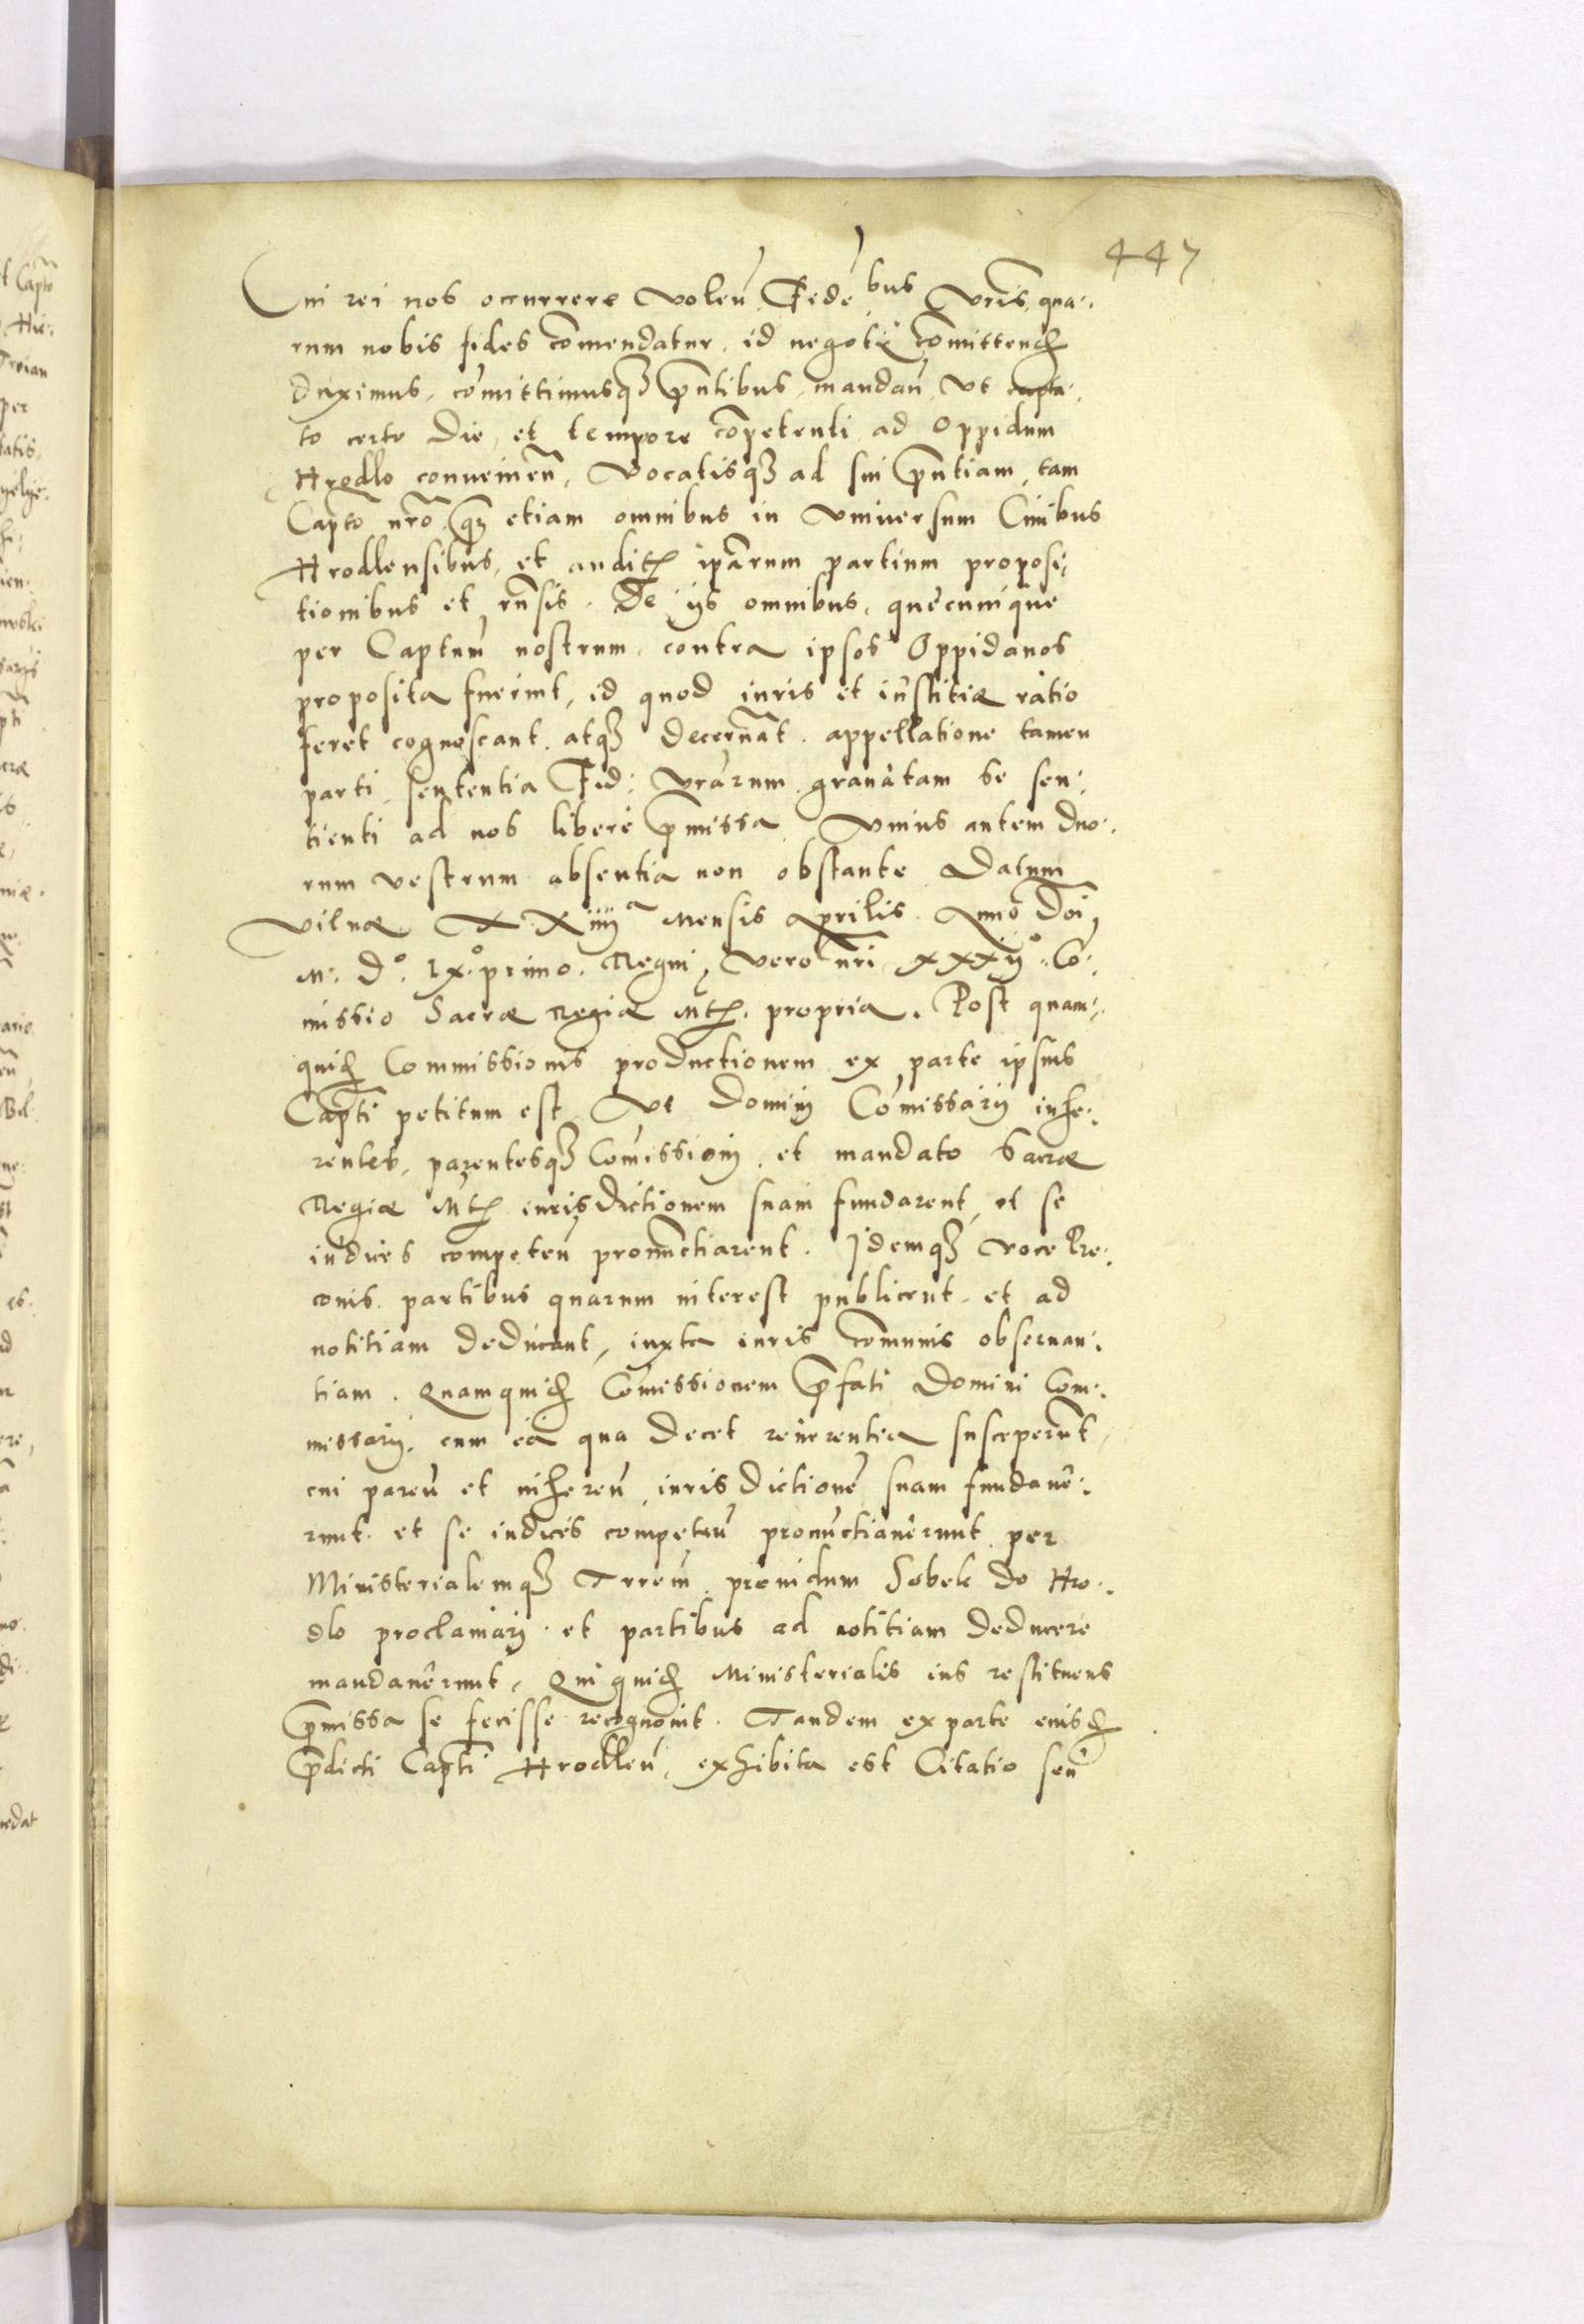 447
Cui rei nos occurrere volen̄ Fidēbus vr̄is, qua:
rum nobis fides com̄endatur, id negotii com̄ittend
duximus, com̄ittimusq₃ pn̄tibus, mandan̄, vt capta:
to certo die, et tempore com̄petenti ad Oppidum
Hrodlo convenien̄, vocatisq₃ ad sui pn̄tiam, tam
Capt̄o nr̄o q₃ etiam omnibus in vniversum Ciuibus
Hrodlensibus, et auditꝭ ip̄arum partium proposi:
tionibus et rn̄sis. De ijs omnibus, quecunique
per Captum̄ nostrum, contra ipsos Oppidanos
proposita fuerint, id quod iuris et iustitiæ ratio
feret cognoscant, atq₃ decernāt. appellatione tamen
parti, sententia Fid: vrārum grauatam se sen:
tienti ad nos libere p̄missa. Vnius autem duo:
rum vestrum absentia non obstante Datum
Vilnæ XXiiijᵃ Mensis Aprilis. Anno Doī,
M: D°. Lx.° primo. Regni vero nr̄i XXXij°. Co:
missio Sacræ Regiæ Mtꝭ. propria. Post quam:
quid Commissionis productionem ex parte ipsius
Capt̄i petitum est. Vt Dominj Com̄issarij inhe:
rentes, parentesq₃ Com̄issionj, et mandato Sacræ
Regiæ Mtꝭ iurisdictionem suam fundarent, et se
iudices competen̄ pronunctiarent. Idemq₃ voce Præ:
conis, partibus quarum interest publicent, et ad
notitiam deducant, iuxta iuris com̄unis obseruan:
tiam. Quamquid Com̄issionem p̄fati Domini Com:
missarij, cum ea qua decet reuerentia susceperūt,
cui paren̄ et inheren̄ iurisdictionē suam fundaue:
runt. et se iudices competen̄ pronūctiauerunt per
Ministerialemq₃ Trrem̄, prouidum Sobek do Hro:
dlo proclamarj. et partibus ad notitiam deducere
mandauerunt. Qui quid Ministerialis ius restituens
p̄missa se fecisse recognouit. Tandem ex parte eiusd
p̄dicti Capt̄i Hrodlen̄, exhibita est Citatio seu